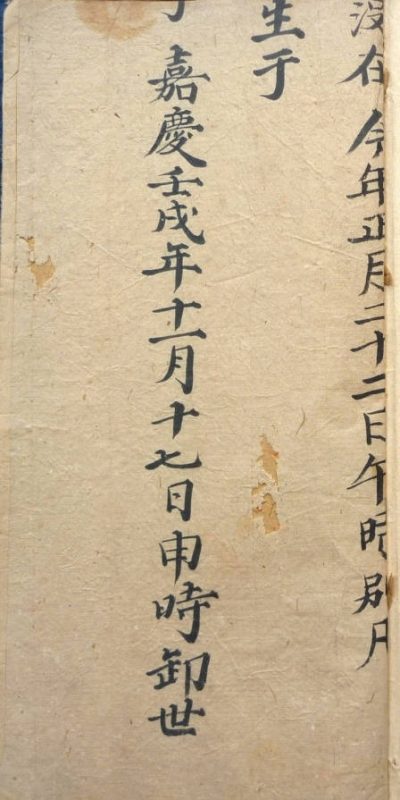 没在 今年正月二十二日午時別凡
生于
于 嘉慶壬戌年十一月十七日申時卸世